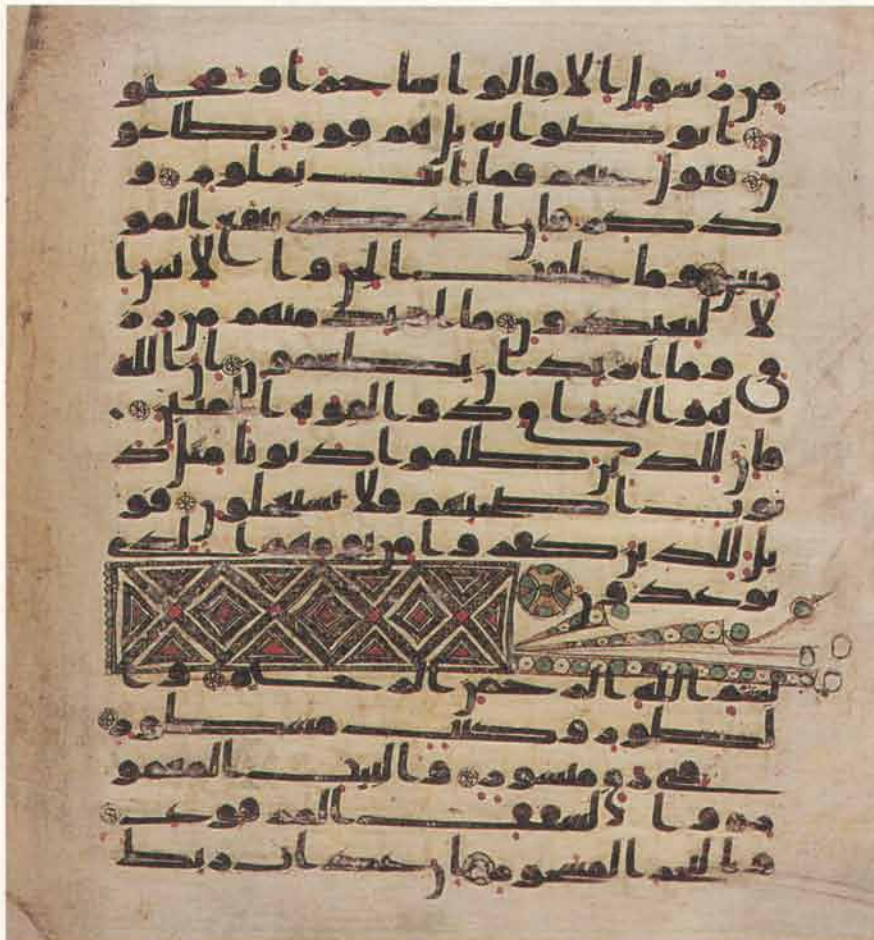 من رسول الا قالوا ساحر او مجنو
ن اتوصوا به بل هم قوم طاغو
ن فتول عنهم فما انت بملوم و
ذكر فان الذكرى تنفع المو
منين وما خلقت الجن والانس ا
لا ليعبدون ما اريد منهم من رز
ق وما اريد ان يطعمون ان الله
هو الرزاق ذو القوة المتين
فان للذين ظلموا ذنوبا مثل ذ
نوب اصحبهم فلا يستعجلون فو
يل للذين كفروا من يومهم الذي
يوعدون
بسم الله الرحمن الرحيم وا
لطور وكتب مسطور
في رق منشور والبيت المعمو
ر والسقف المرفوع
والبحر المسجور ان عذاب ربك